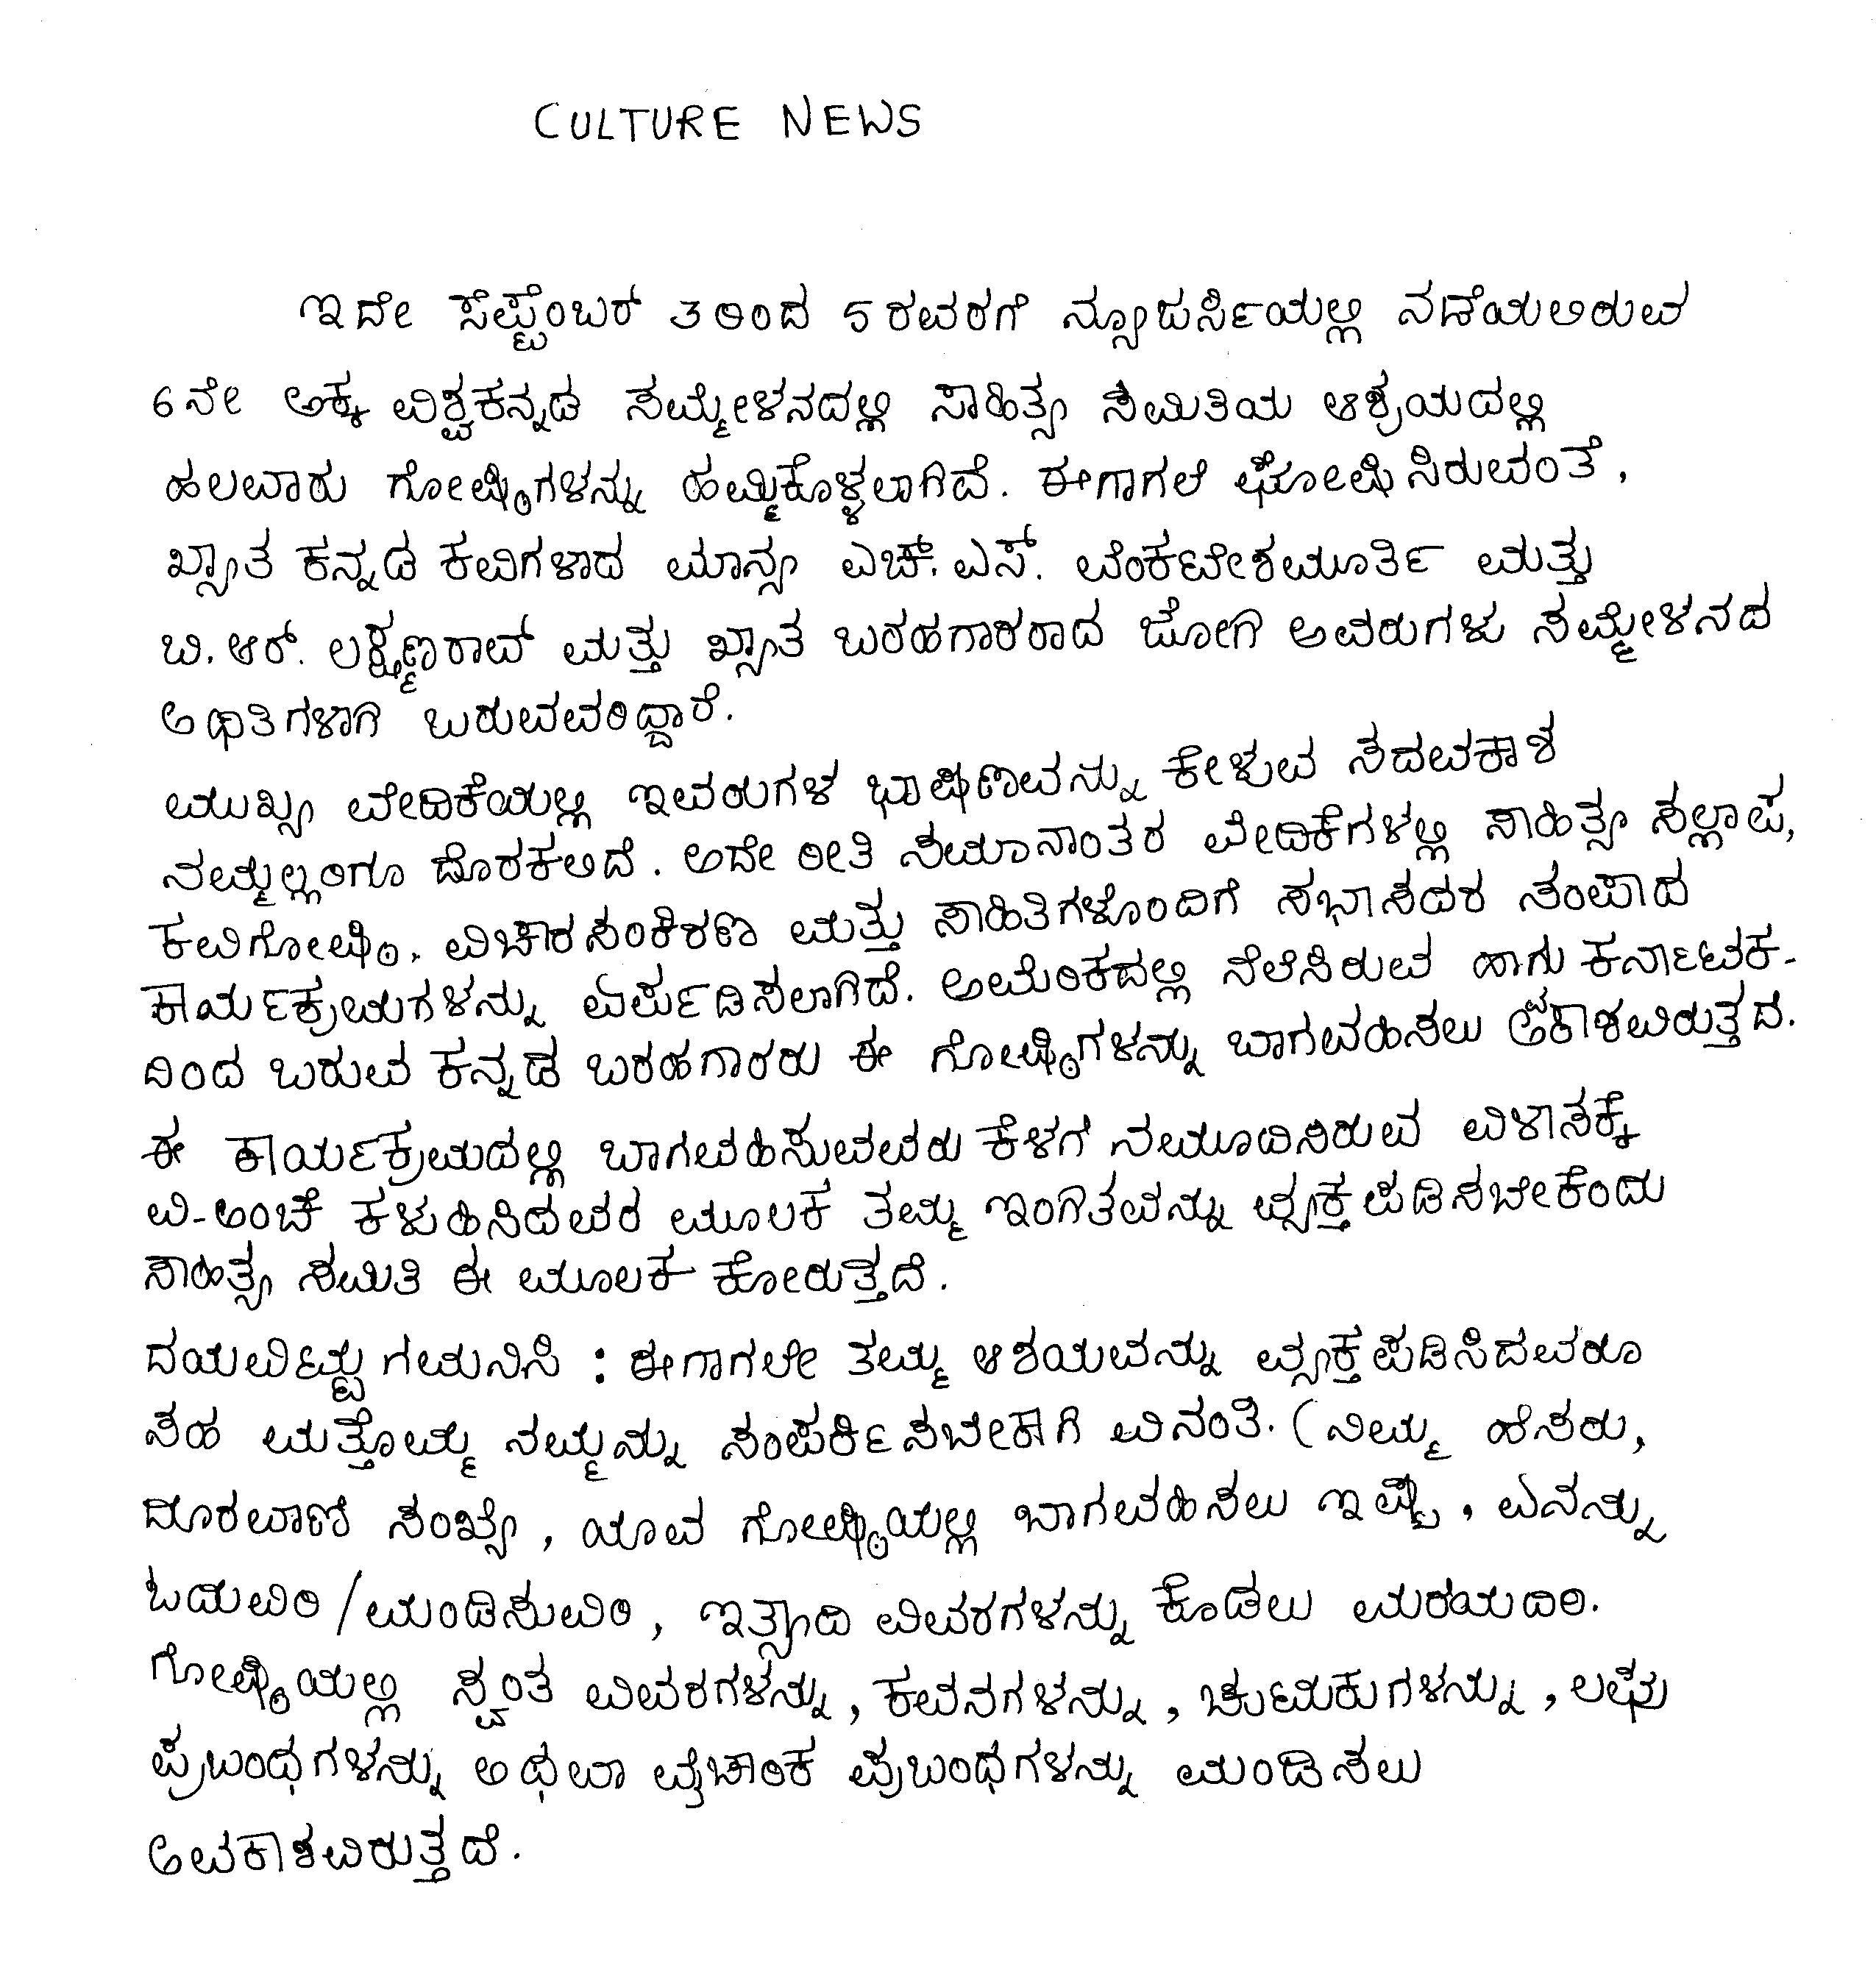 CULTURE NEWS
ಇದೇ ಸೆಪ್ಟೆಂಬರ್ 3 ರಿಂದ 5 ರವರಗೆ ನ್ಯೂಜರ್ಸಿಯಲ್ಲಿ ನಡೆಯಲಿರುವ
6ನೇ ಅಕ್ಕ ವಿಶ್ವಕನ್ನಡ ಸಮ್ಮೇಳನದಲ್ಲಿ ಸಾಹಿತ್ಯ ಸಮಿತಿಯ ಆಶ್ರಯದಲ್ಲಿ
ಹಲವಾರು ಗೋಷ್ಠಿಗಳನ್ನು ಹಮ್ಮಿಕೊಳ್ಳಲಾಗಿವೆ. ಈಗಾಗಲೆ ಘೋಷಿಸಿರುವಂತೆ,
ಖ್ಯಾತ ಕನ್ನಡ ಕವಿಗಳಾದ ಮಾನ್ಯ ಎಚ್. ಎಸ್. ವೆಂಕಟೇಶಮೂರ್ತಿ ಮತ್ತು
ಬಿ. ಆರ್. ಲಕ್ಷ್ಮಣರಾವ್ ಮತ್ತು ಖ್ಯಾತ ಬರಹಗಾರರಾದ ಜೋಗಿ ಅವರುಗಳು ಸಮ್ಮೇಳನದ
ಅಥಿತಿಗಳಾಗಿ ಬರುವವರಿದ್ದಾರೆ.
ಮುಖ್ಯ ವೇದಿಕೆಯಲ್ಲಿ ಇವರುಗಳ ಭಾಷಣವನ್ನು ಕೇಳುವ ಸದವಕಾಶ
ನಮ್ಮೆಲ್ಲರಿಗೂ ದೊರಕಲಿದೆ. ಅದೇ ರೀತಿ ಸಮಾನಾಂತರ ವೇದಿಕೆಗಳಲ್ಲಿ ಸಾಹಿತ್ಯ ಸಲ್ಲಾಪ,
ಕವಿಗೋಷ್ಠಿ, ವಿಚಾರಸಂಕಿರಣ ಮತ್ತು ಸಾಹಿತಿಗಳೊಂದಿಗೆ ಸಭಾಸದರ ಸಂವಾದ
ಕಾರ್ಯಕ್ರಮಗಳನ್ನು ಏರ್ಪಡಿಸಲಾಗಿದೆ. ಅಮೆರಿಕದಲ್ಲಿ ನೆಲೆಸಿರುವ ಹಾಗು ಕರ್ನಾಟಕ-
ದಿಂದ ಬರುವ ಕನ್ನಡ ಬರಹಗಾರರು ಈ ಗೋಷ್ಠಿಗಳನ್ನು ಬಾಗವಹಿಸಲು ಅವಕಾಶವಿರುತ್ತದೆ.
ಈ ಕಾರ್ಯಕ್ರಮದಲ್ಲಿ ಬಾಗವಹಿಸುವವರು ಕೆಳಗೆ ನಮೂದಿಸಿರುವ ವಿಳಾಸಕ್ಕೆ
ವಿ-ಅಂಚೆ ಕಳುಹಿಸಿದವರ ಮೂಲಕ ತಮ್ಮ ಇಂಗಿತವನ್ನು ವ್ಯಕ್ತಪಡಿಸಬೇಕೆಂದು
ಸಾಹಿತ್ಯ ಸಮಿತಿ ಈ ಮೂಲಕ ಕೋರುತ್ತದೆ.
ದಯವಿಟ್ಟು ಗಮನಿಸಿ : ಈಗಾಗಲೇ ತಮ್ಮ ಆಶಯವನ್ನು ವ್ಯಕ್ತಪಡಿಸಿದವರೂ
ಸಹ ಮತ್ತೊಮ್ಮೆ ನಮ್ಮನ್ನು ಸಂಪರ್ಕಿಸಬೇಕಾಗಿ ವಿನಂತಿ. (ನಿಮ್ಮ ಹೆಸರು,
ದೂರವಾಣಿ ಸಂಖ್ಯೆ, ಯಾವ ಗೋಷ್ಠಿಯಲ್ಲಿ ಬಾಗವಹಿಸಲು ಇಷ್ಟ, ಏನನ್ನು
ಓದುವಿರಿ/ಮಂಡಿಸುವಿರಿ, ಇತ್ಯಾದಿ ವಿವರಗಳನ್ನು ಕೊಡಲು ಮರೆಯದಿರಿ.
ಗೋಷ್ಠಿಯಲ್ಲಿ ಸ್ವಂತ ವಿವರಗಳನ್ನು, ಕವನಗಳನ್ನು, ಚುಟುಕುಗಳನ್ನು, ಲಘು
ಪ್ರಬಂಧಗಳನ್ನು ಅಥವಾ ವೈಚಾರಿಕ ಪ್ರಬಂಧಗಳನ್ನು ಮಂಡಿಸಲು
ಅವಕಾಶವಿರುತ್ತದೆ.